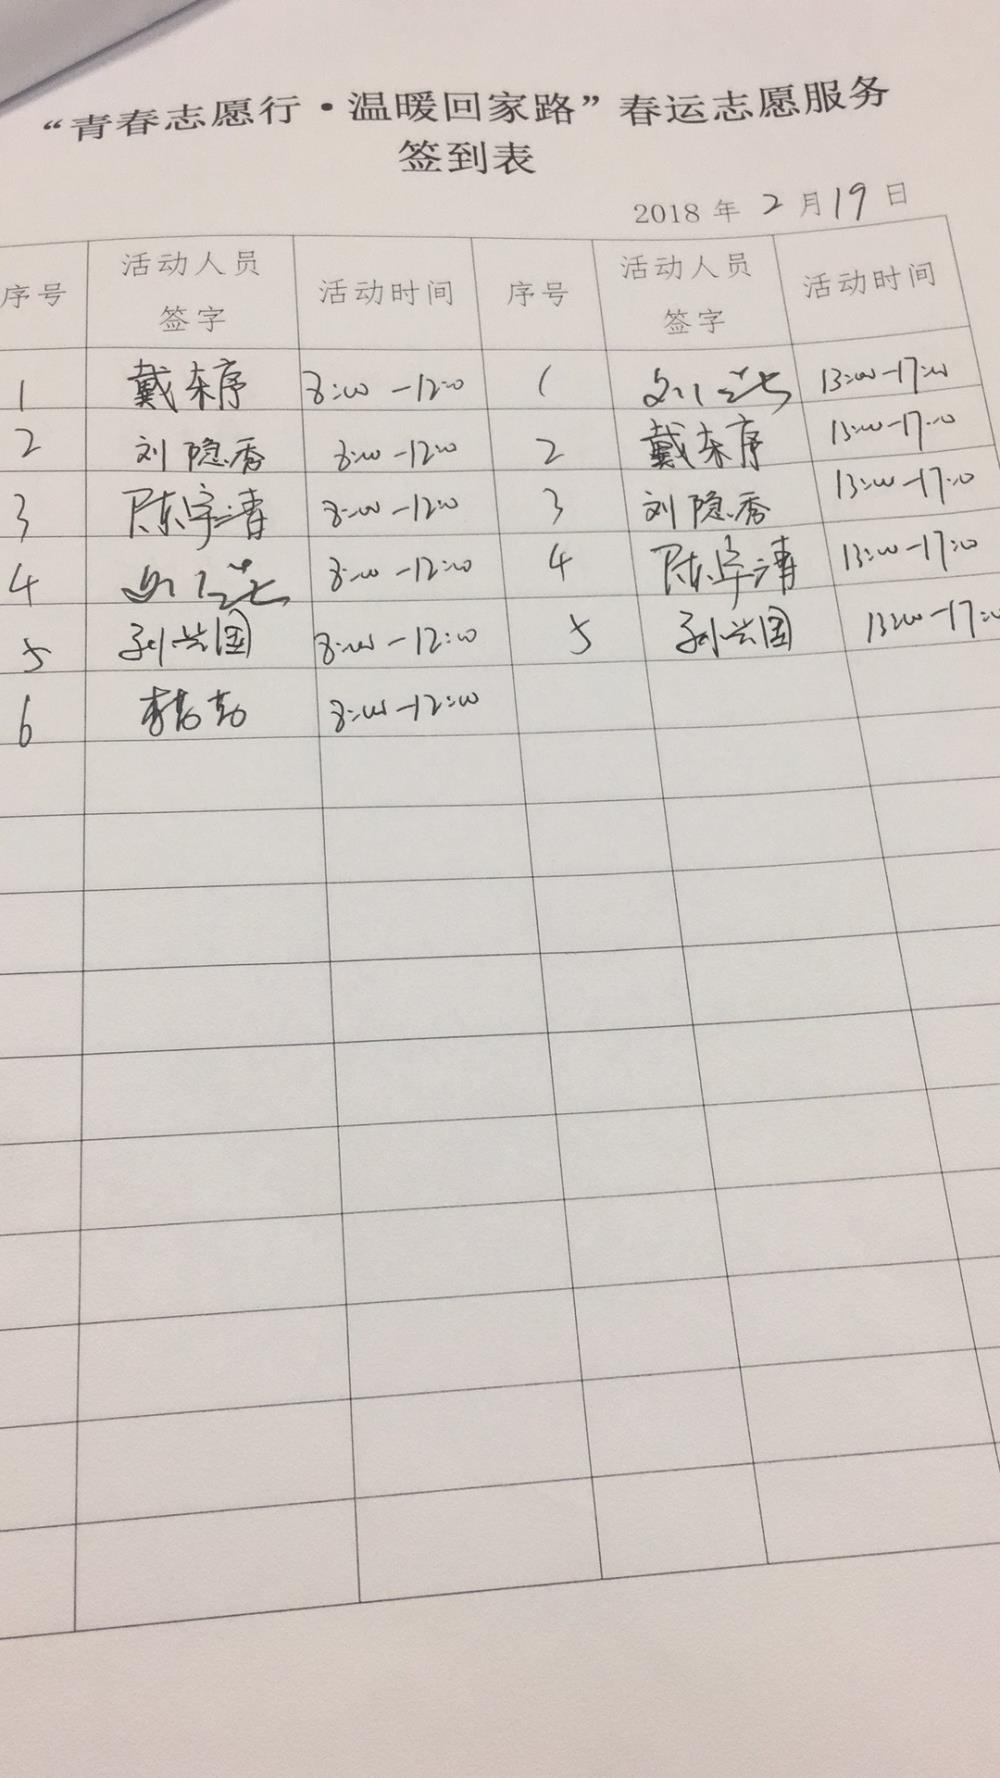 “青春志愿行·温暖回家路”春运志愿服务
签到表
2018 年 2 月 19 日
序号 活动人员签字 活动时间 序号 活动人员签字 活动时间
1 戴东序 8:00-12:00 1 刘 13:00-17:00
2 刘隐秀 8:00-12:00 2 戴东序 13:00-17:00
3 陈宇清 8:00-12:00 3 刘隐秀 13:00-17:00
4 刘 8:00-12:00 4 陈宇清 13:00-17:00
5 孙兴国 8:00-12:00 5 孙兴国 13:00-17:00
6 李 8:00-12:00